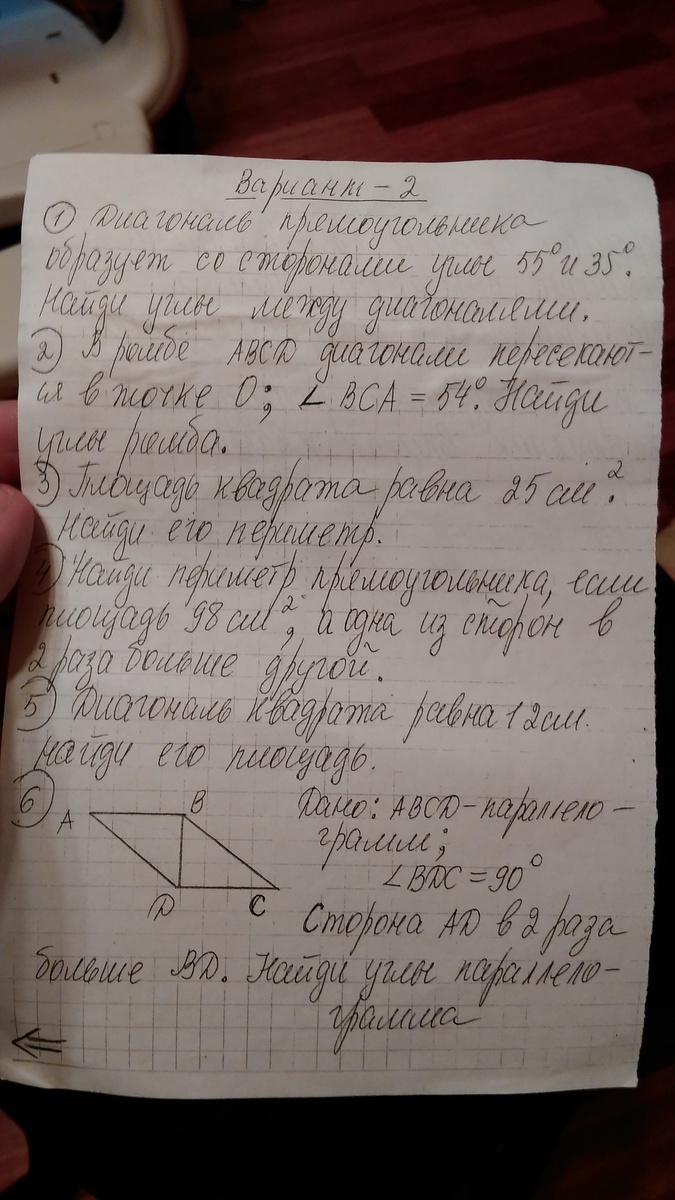 Вариант – 2
1 Диагональ прямоугольника
образует со сторонами углы 55° и 35°.
Найди углы между диагоналями.
2 В ромбе ABCD диагонали пересекают-
ся в точке O; ∠BCA = 54°. Найди
углы ромба.
3 Площадь квадрата равна 25 см².
Найди его периметр.
4 Найди периметр прямоугольника, если
площадь 98 см², а одна из сторон в
2 раза больше другой.
5 Диагональ квадрата равна 12 см.
найди его площадь.
6
A B
D C
Дано: ABCD – параллело –
грамм;
∠BDC = 90°
Сторона AD в 2 раза
больше BD. Найди углы параллело –
грамма